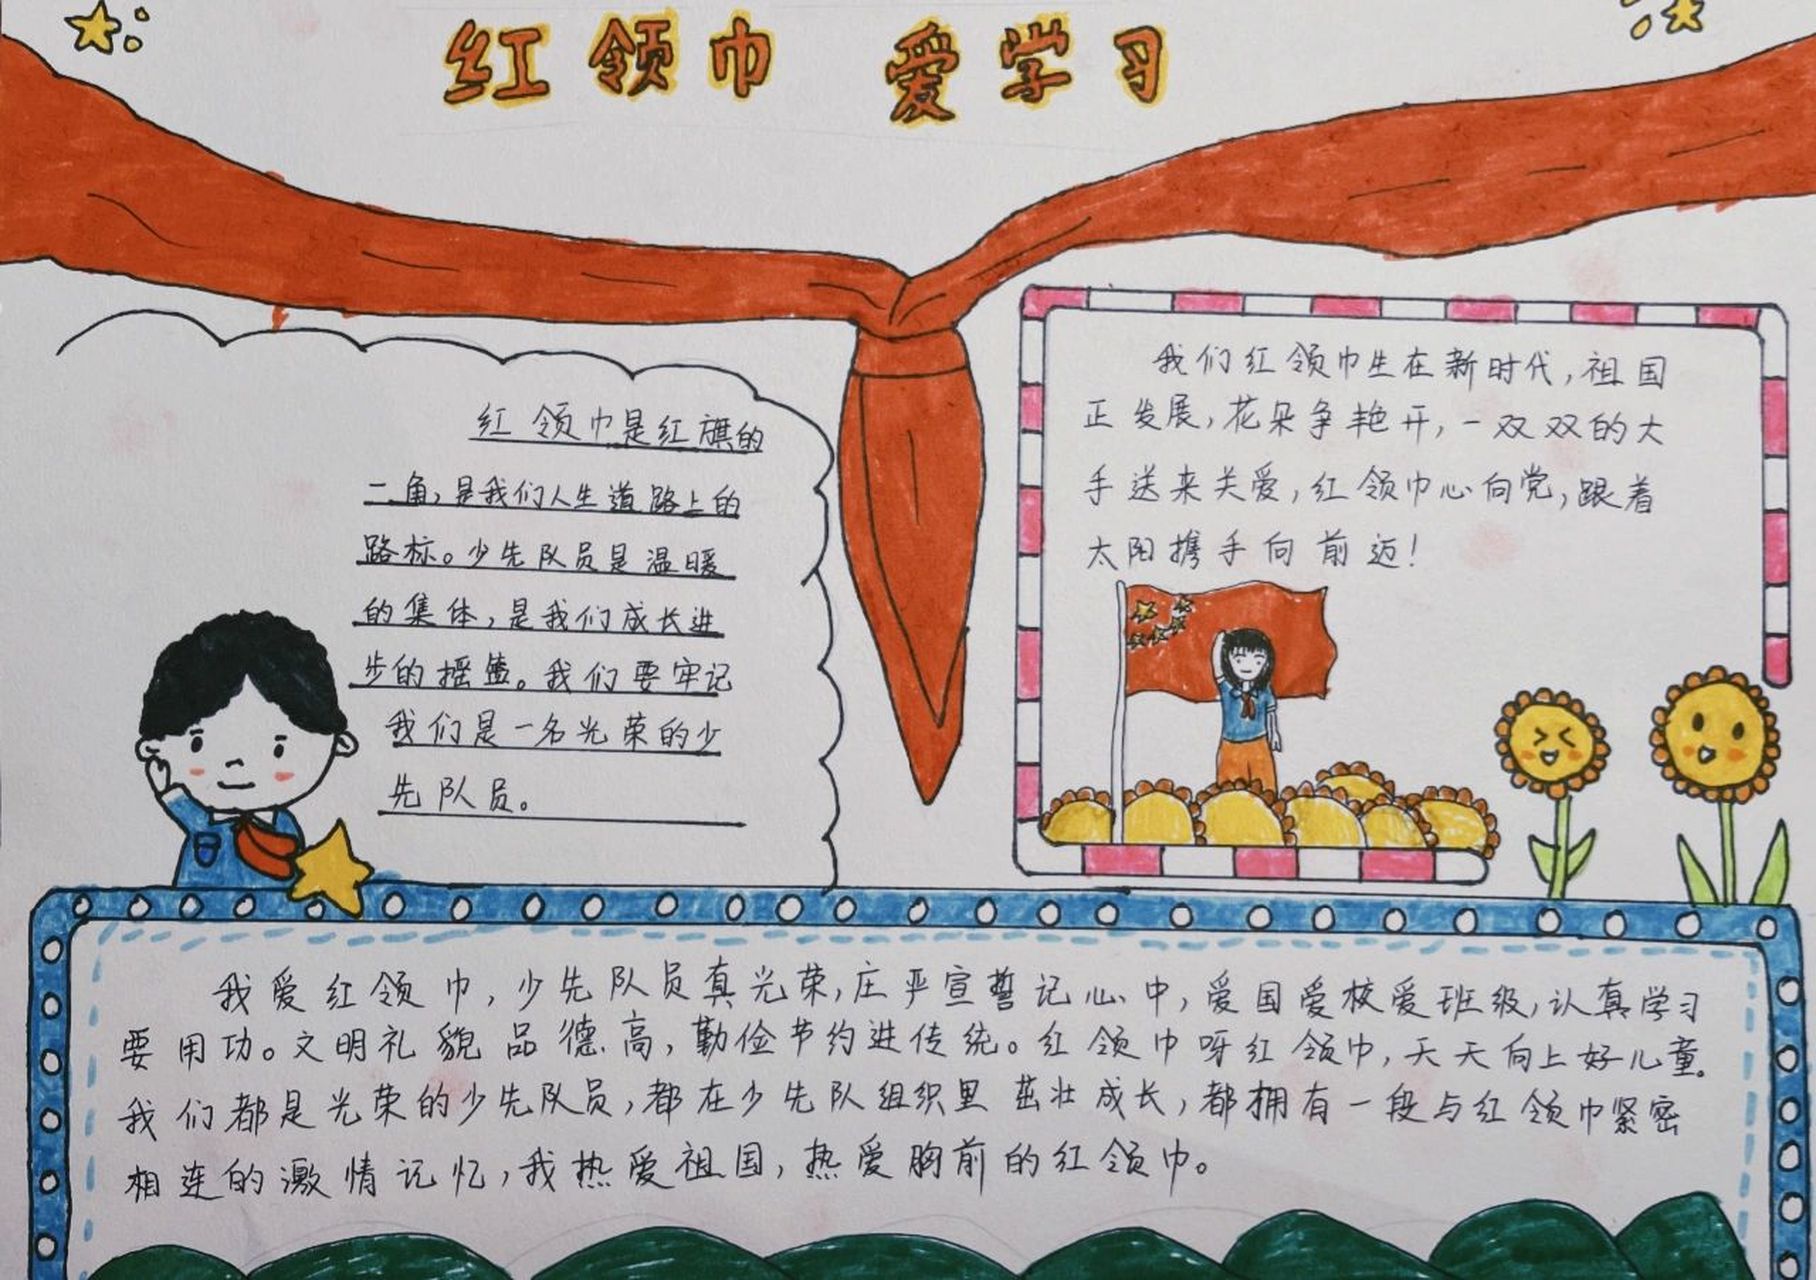 红领巾 爱学习
红领巾是红旗的
一角,是我们人生道路上的
路标。少先队员是温暖
的集体,是我们成长进
步的摇篮。我们要牢记
我们是一名光荣的少
先队员。
我们红领巾生在新时代,祖国
正发展,花朵争艳开,一双双的大
手送来关爱,红领巾心向党,跟着
太阳携手向前迈!
我爱红领巾,少先队员真光荣,庄严宣誓记心中,爱国爱校爱班级,认真学习
要用功。文明礼貌品德高,勤俭节约进传统。红领巾呀红领巾,天天向上好儿童。
我们都是光荣的少先队员,都在少先队组织里茁壮成长,都拥有一段与红领巾紧密
相连的激情记忆,我热爱祖国,热爱胸前的红领巾。